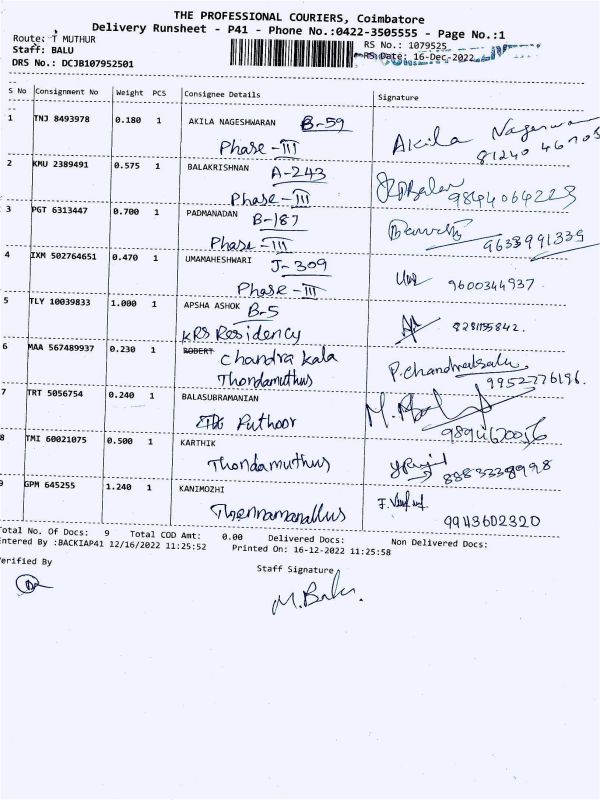 THE PROFESSIONAL COURIERS, Coimbatore
Delivery Runsheet - P41 - Phone No.:0422-3505555 - Page No.:1
Route: T MUTHUR
RS No.: 1079525
Staff: BALU
RS Date: 16-Dec-2022
DRS No.: DCJB107952501
S No Consignment No Weight PCS Consignee Details Signature
1 TNJ 8493978 0.180 1 AKILA NAGESHWARAN B-59
Phase-III
Akila
81240
2 KMU 2389491 0.575 1 BALAKRISHNAN A-243
Phase-III
9844064223
3 PGT 6313447 0.700 1 PADMANADAN
B-187
Phase-III
9633991335
4 IXM 502764651 0.470 1 UMAMAHESHWARI
J-309
Phase-III
Uma 9600344937.
5 TLY 10039833 1.000 1 APSHA ASHOK B-5
KRS Residency
8281155842.
6 MAA 567489937 0.230 1 ROBERT Chandra kala
Thondamuthus
9952776196.
7 TRT 5056754 0.240 1 BALASUBRAMANIAN
Puthoor
8 TMI 60021075 0.500 1 KARTHIK
Thondamuthus
8883338998
9 GPM 645255 1.240 1 KANIMOZHI
Thennamanallus
9943602320
Total No. Of Docs: 9 Total COD Amt: 0.00 Delivered Docs: Non Delivered Docs:
Entered By :BACKIAP41 12/16/2022 11:25:52 Printed On: 16-12-2022 11:25:58
Verified By
Staff Signature
M.Balu.